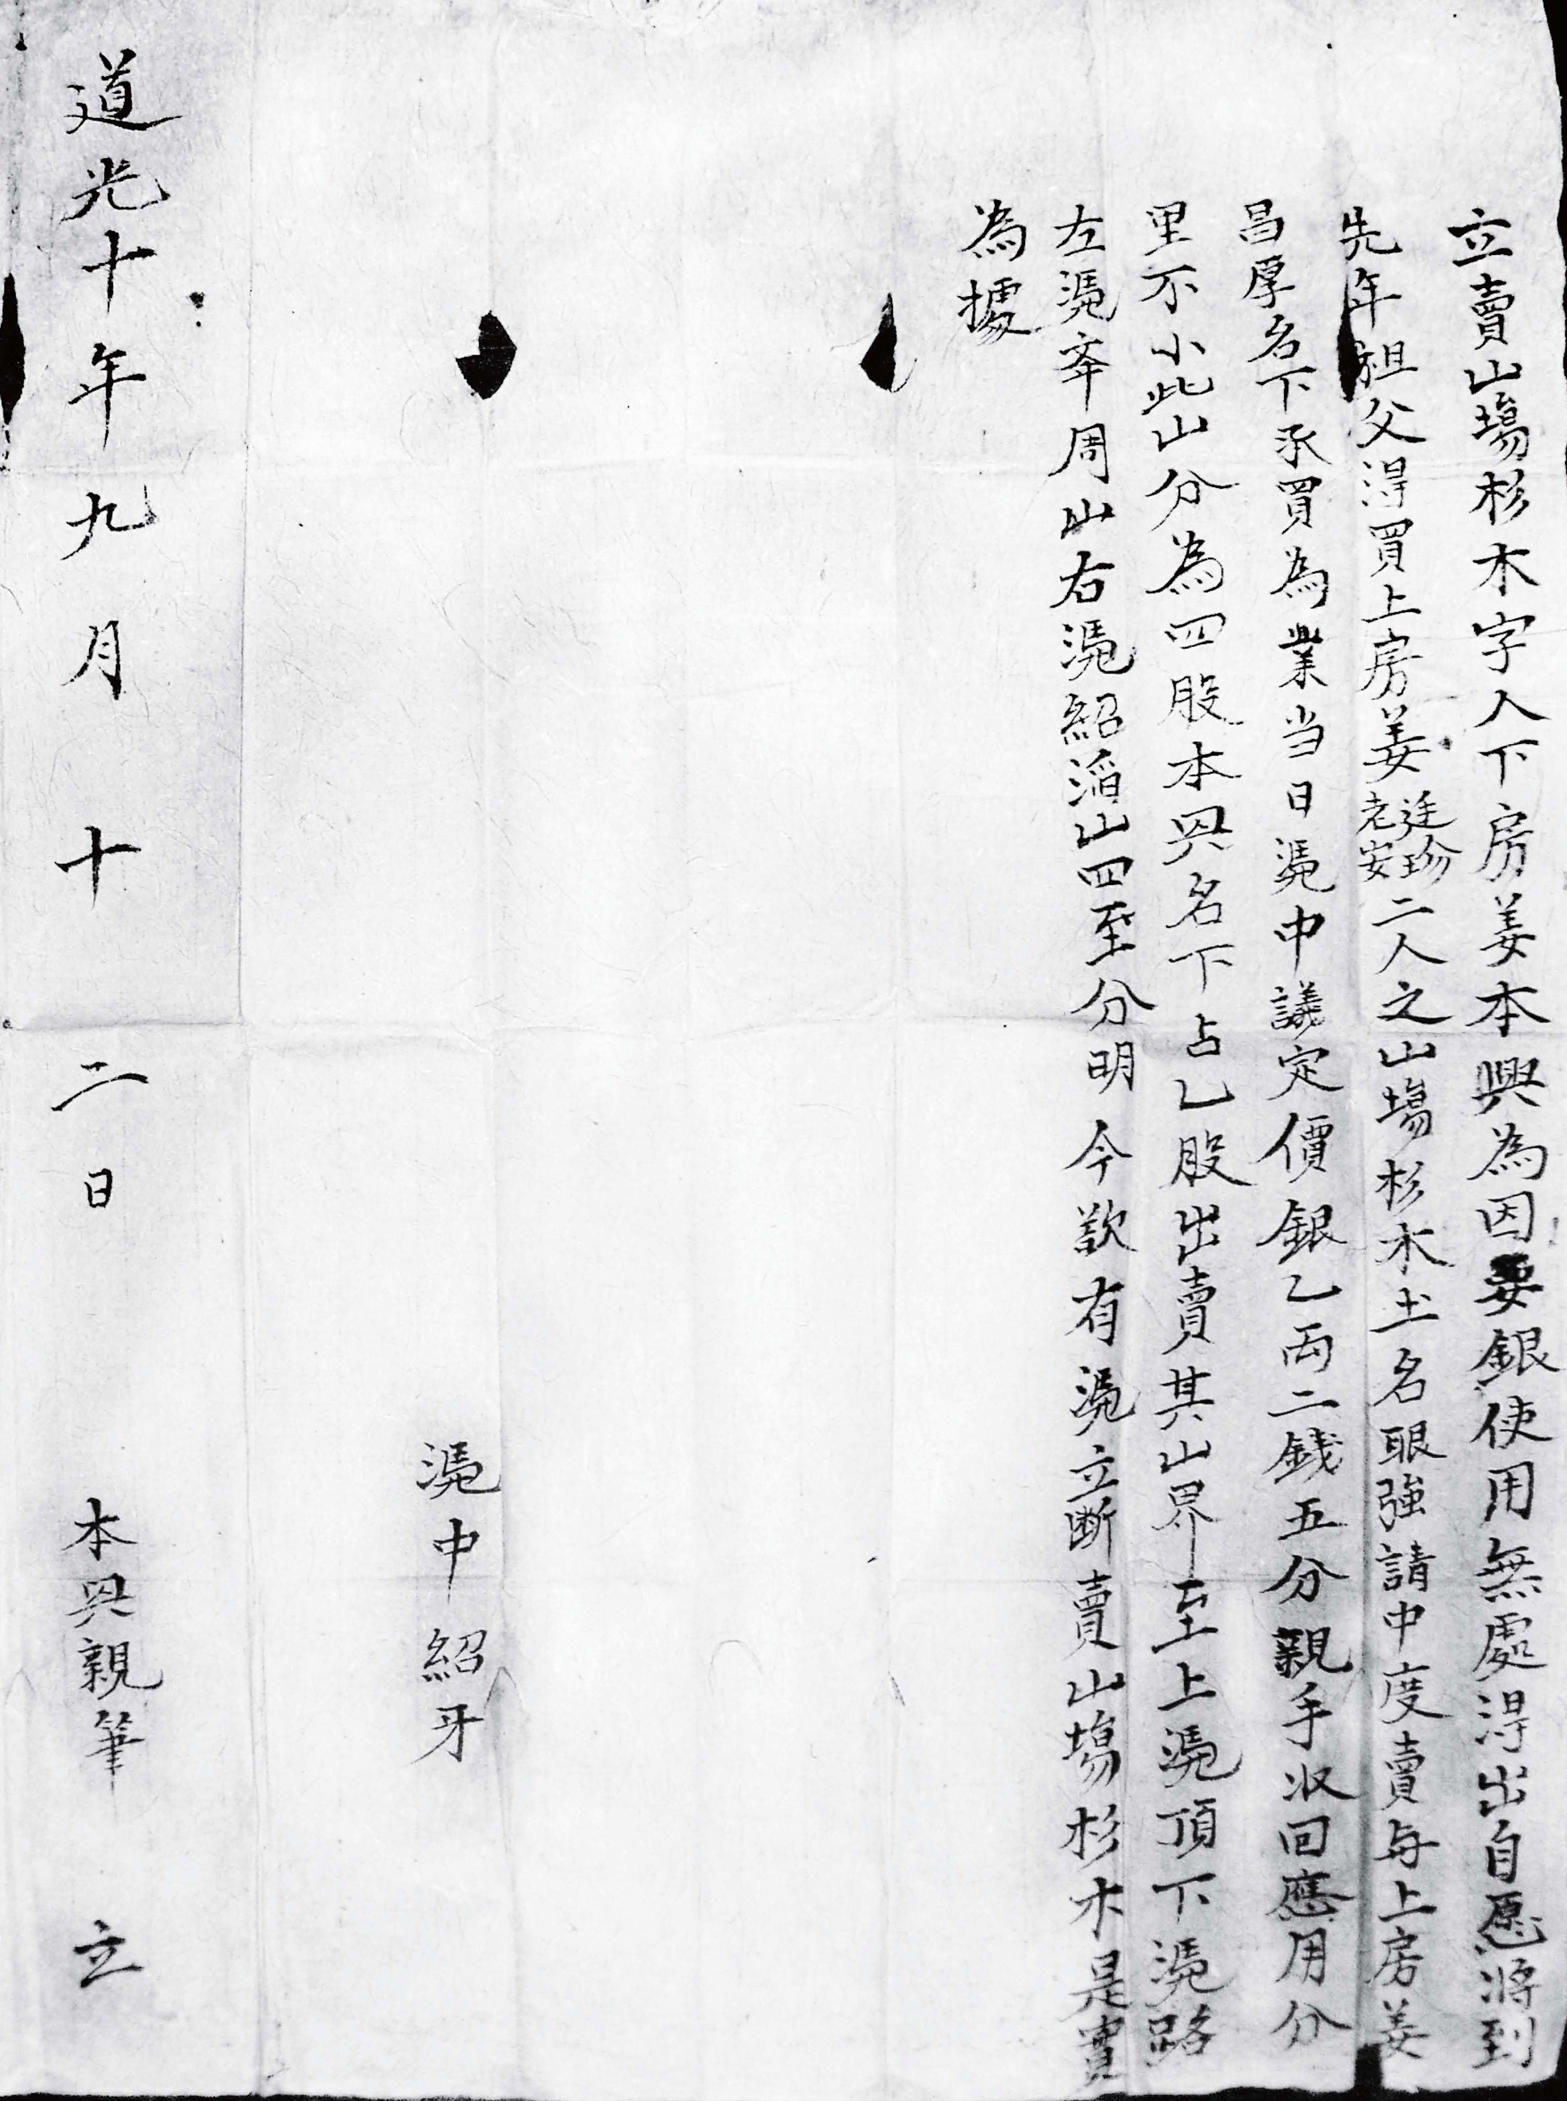 立賣山塲杉木字人下房姜本興為因要銀使用無處淂出自愿將到
先年祖父淂買上房姜廷珍老安二人之山塲杉木土名眼強請中度賣与上房姜
昌厚名下承買為業当日凴中議定價銀乙両二錢五分親手收回應用分
里不小此山分為四股本興名下占乙股出賣其山界至上凴頂下凴路
左凴夲周山右凴紹滔山四至分明今欲有凴立断賣山塲杉木是實
為據
凴中紹牙
道光十年九月十二日 本興親筆 立